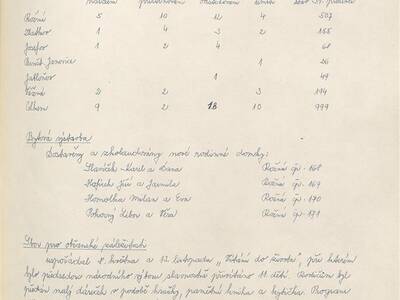 narození přistěhování odstěhování úmrtí stav
Rožná 5 10 12 4 507
Zlatkov 1 4 3 2 155
Josefov 1 2 4
Suché Janovice 1 26
Jabloňov 1 49
2 2 3 194
Celkem 9 2 18 10 999
Bytová výstavba
Dostavěny a zkolaudovány nové rodinné domky:
Slavíček Karel a Dana Rožná čp. 168
Jiří a Jarmila Rožná čp. 169
Homolka Milan a Eva Rožná čp. 170
Libor a Věra Rožná čp. 171
Sbor pro občanské záležitosti
uspořádal 8. května a 12. listopadu „Vítání do života", při kterém
bylo předsedou národního výboru slavnostně přivítáno 11 dětí. Rodičům byl
předán malý dáreček v podobě hračky, pamětní kniha a kytička. Program